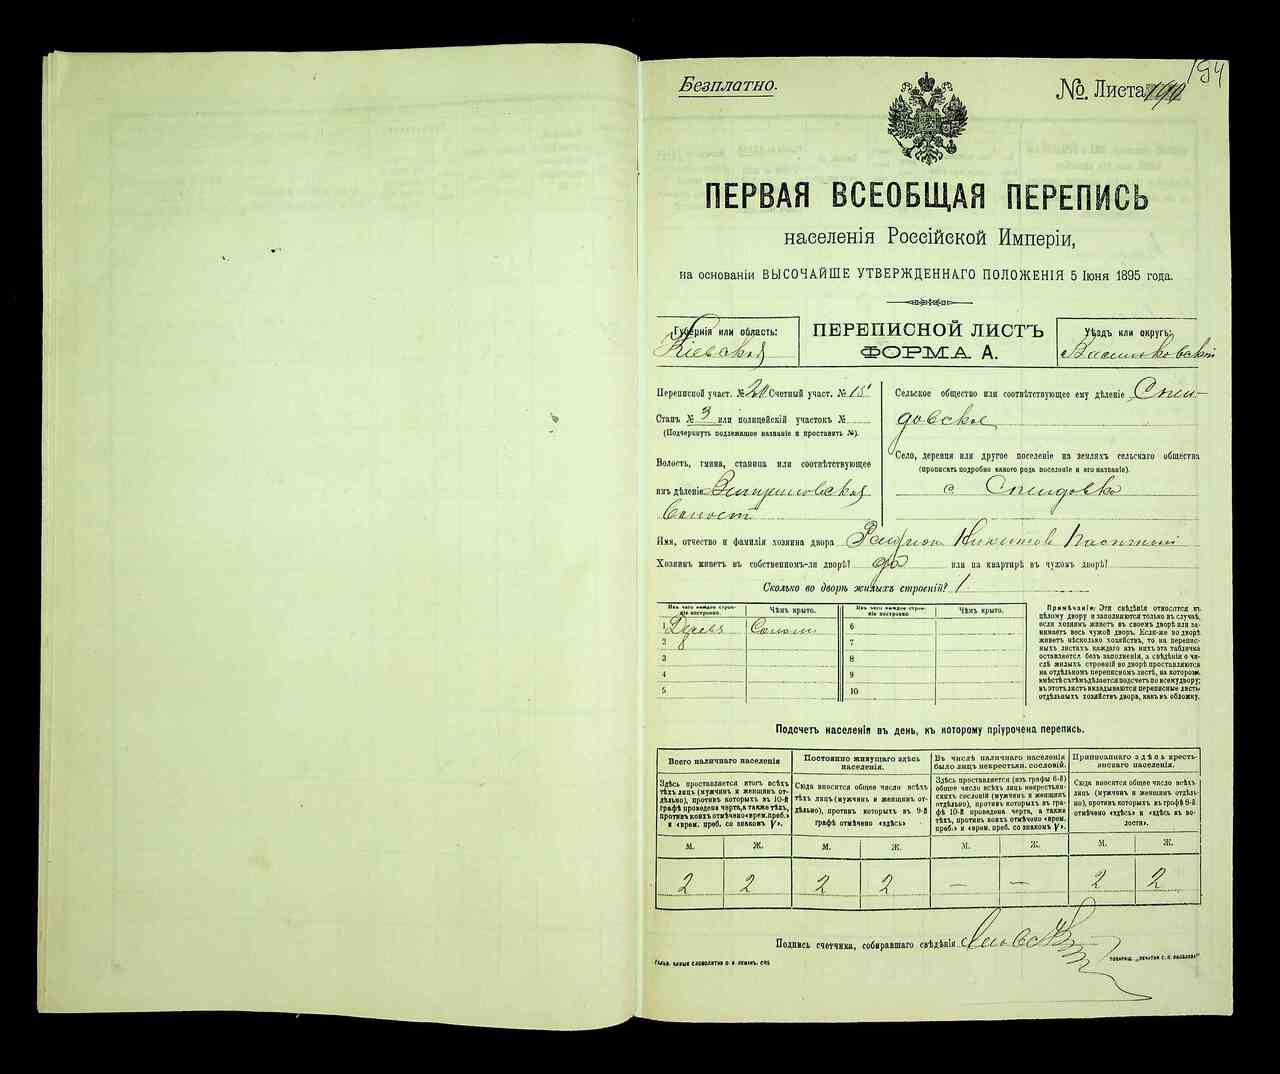 194
Безплатно.
№ Листа 190
ПЕРВАЯ ВСЕОБЩАЯ ПЕРЕПИСЬ
населенія Россійской Имперіи,
на основаніи ВЫСОЧАЙШЕ УТВЕРЖДЕННАГО ПОЛОЖЕНІЯ 5 Іюня 1895 года.
Губернія или область:
Кіевская
ПЕРЕПИСНОЙ ЛИСТЪ
ФОРМА А.
Уѣздъ или округъ:
Васильковскій
Переписной участ. № 20 Счетный участ. № 15
Станъ № 3 или полицейскій участокъ №
(Подчеркнуть подлежащее названіе и проставить №).
Волость, гмина, станица или соотвѣтствующее
имъ дѣленіе
Волост
Сельское общество или соотвѣтствующее ему дѣленіе
довское
Село, деревня или другое поселеніе на земляхъ сельскаго общества
(прописать подробно какого рода поселеніе и его названіе).
с
Имя, отчество и фамилія хозяина двора Никитов
Хозяинъ живетъ въ собственномъ-ли дворѣ? да или на квартирѣ въ чужомъ дворѣ?
Сколько во дворѣ жилыхъ строеній? 1
Изъ чего каждое строеніе построено.
Чѣмъ крыто.
Изъ чего каждое строеніе построено.
Чѣмъ крыто.
1 Дерев Солом 6
2 7
3 8
4 9
5 10
Примѣчаніе: Эти свѣдѣнія относятся къ
цѣлому двору и заполняются только въ случаѣ,
если хозяинъ живетъ въ своемъ дворѣ или за-
нимаетъ весь чужой дворъ. Если-же во дворѣ
живетъ нѣсколько хозяйствъ, то на перепис-
ныхъ листахъ каждаго изъ нихъ эта табличка
оставляется безъ заполненія, а свѣдѣнія о чи-
слѣ жилыхъ строеній во дворѣ проставляются
на отдѣльномъ переписномъ листѣ, на которомъ
вмѣстѣ съ тѣмъ дѣлается подсчетъ по всему двору;
въ этотъ листъ вкладываются переписные листы
отдѣльныхъ хозяйствъ двора, какъ въ обложку.
Подсчетъ населенія въ день, къ которому пріурочена перепись.
Всего наличнаго населенія
Здѣсь проставляется итогъ всѣхъ
тѣхъ лицъ (мужчинъ и женщинъ от-
дѣльно), противъ которыхъ въ 10-й
графѣ проведена черта, а также тѣхъ,
противъ коихъ отмѣчено «врем. преб.»
и «врем. преб. со знакомъ V».
Постоянно живущаго здѣсь
населенія.
Сюда вносится общее число всѣхъ
тѣхъ лицъ (мужчинъ и женщинъ от-
дѣльно), противъ которыхъ въ 9-й
графѣ отмѣчено «здѣсь»
Въ числѣ наличнаго населенія
было лицъ некрестьян. сословій.
Здѣсь проставляется (изъ графы 6-й)
общее число всѣхъ лицъ некрестьян-
скихъ сословій (мужчинъ и женщинъ
отдѣльно), противъ которыхъ въ гра-
фѣ 10-й проведена черта, а также
тѣхъ, противъ коихъ отмѣчено «врем.
преб.» и «врем. преб. со знакомъ V».
Приписаннаго здѣсь кресть-
янскаго населенія.
Сюда вносится общее число всѣхъ
лицъ (мужчинъ и женщинъ отдѣль-
но), противъ которыхъ въ графѣ 8-й
отмѣчено «здѣсь» и «здѣсь въ во-
лости».
М. Ж. М. Ж. М. Ж. М. Ж.
2 2 2 2 — — 2 2
Подпись счетчика, собиравшаго свѣдѣнія
ГАЛЬВ. КЛИШЕ СЛОВОЛИТНИ О. И. ЛЕМАНЪ, СПБ
ТОВАРИЩ. „ПЕЧАТНЯ С. П. ЯКОВЛЕВА“